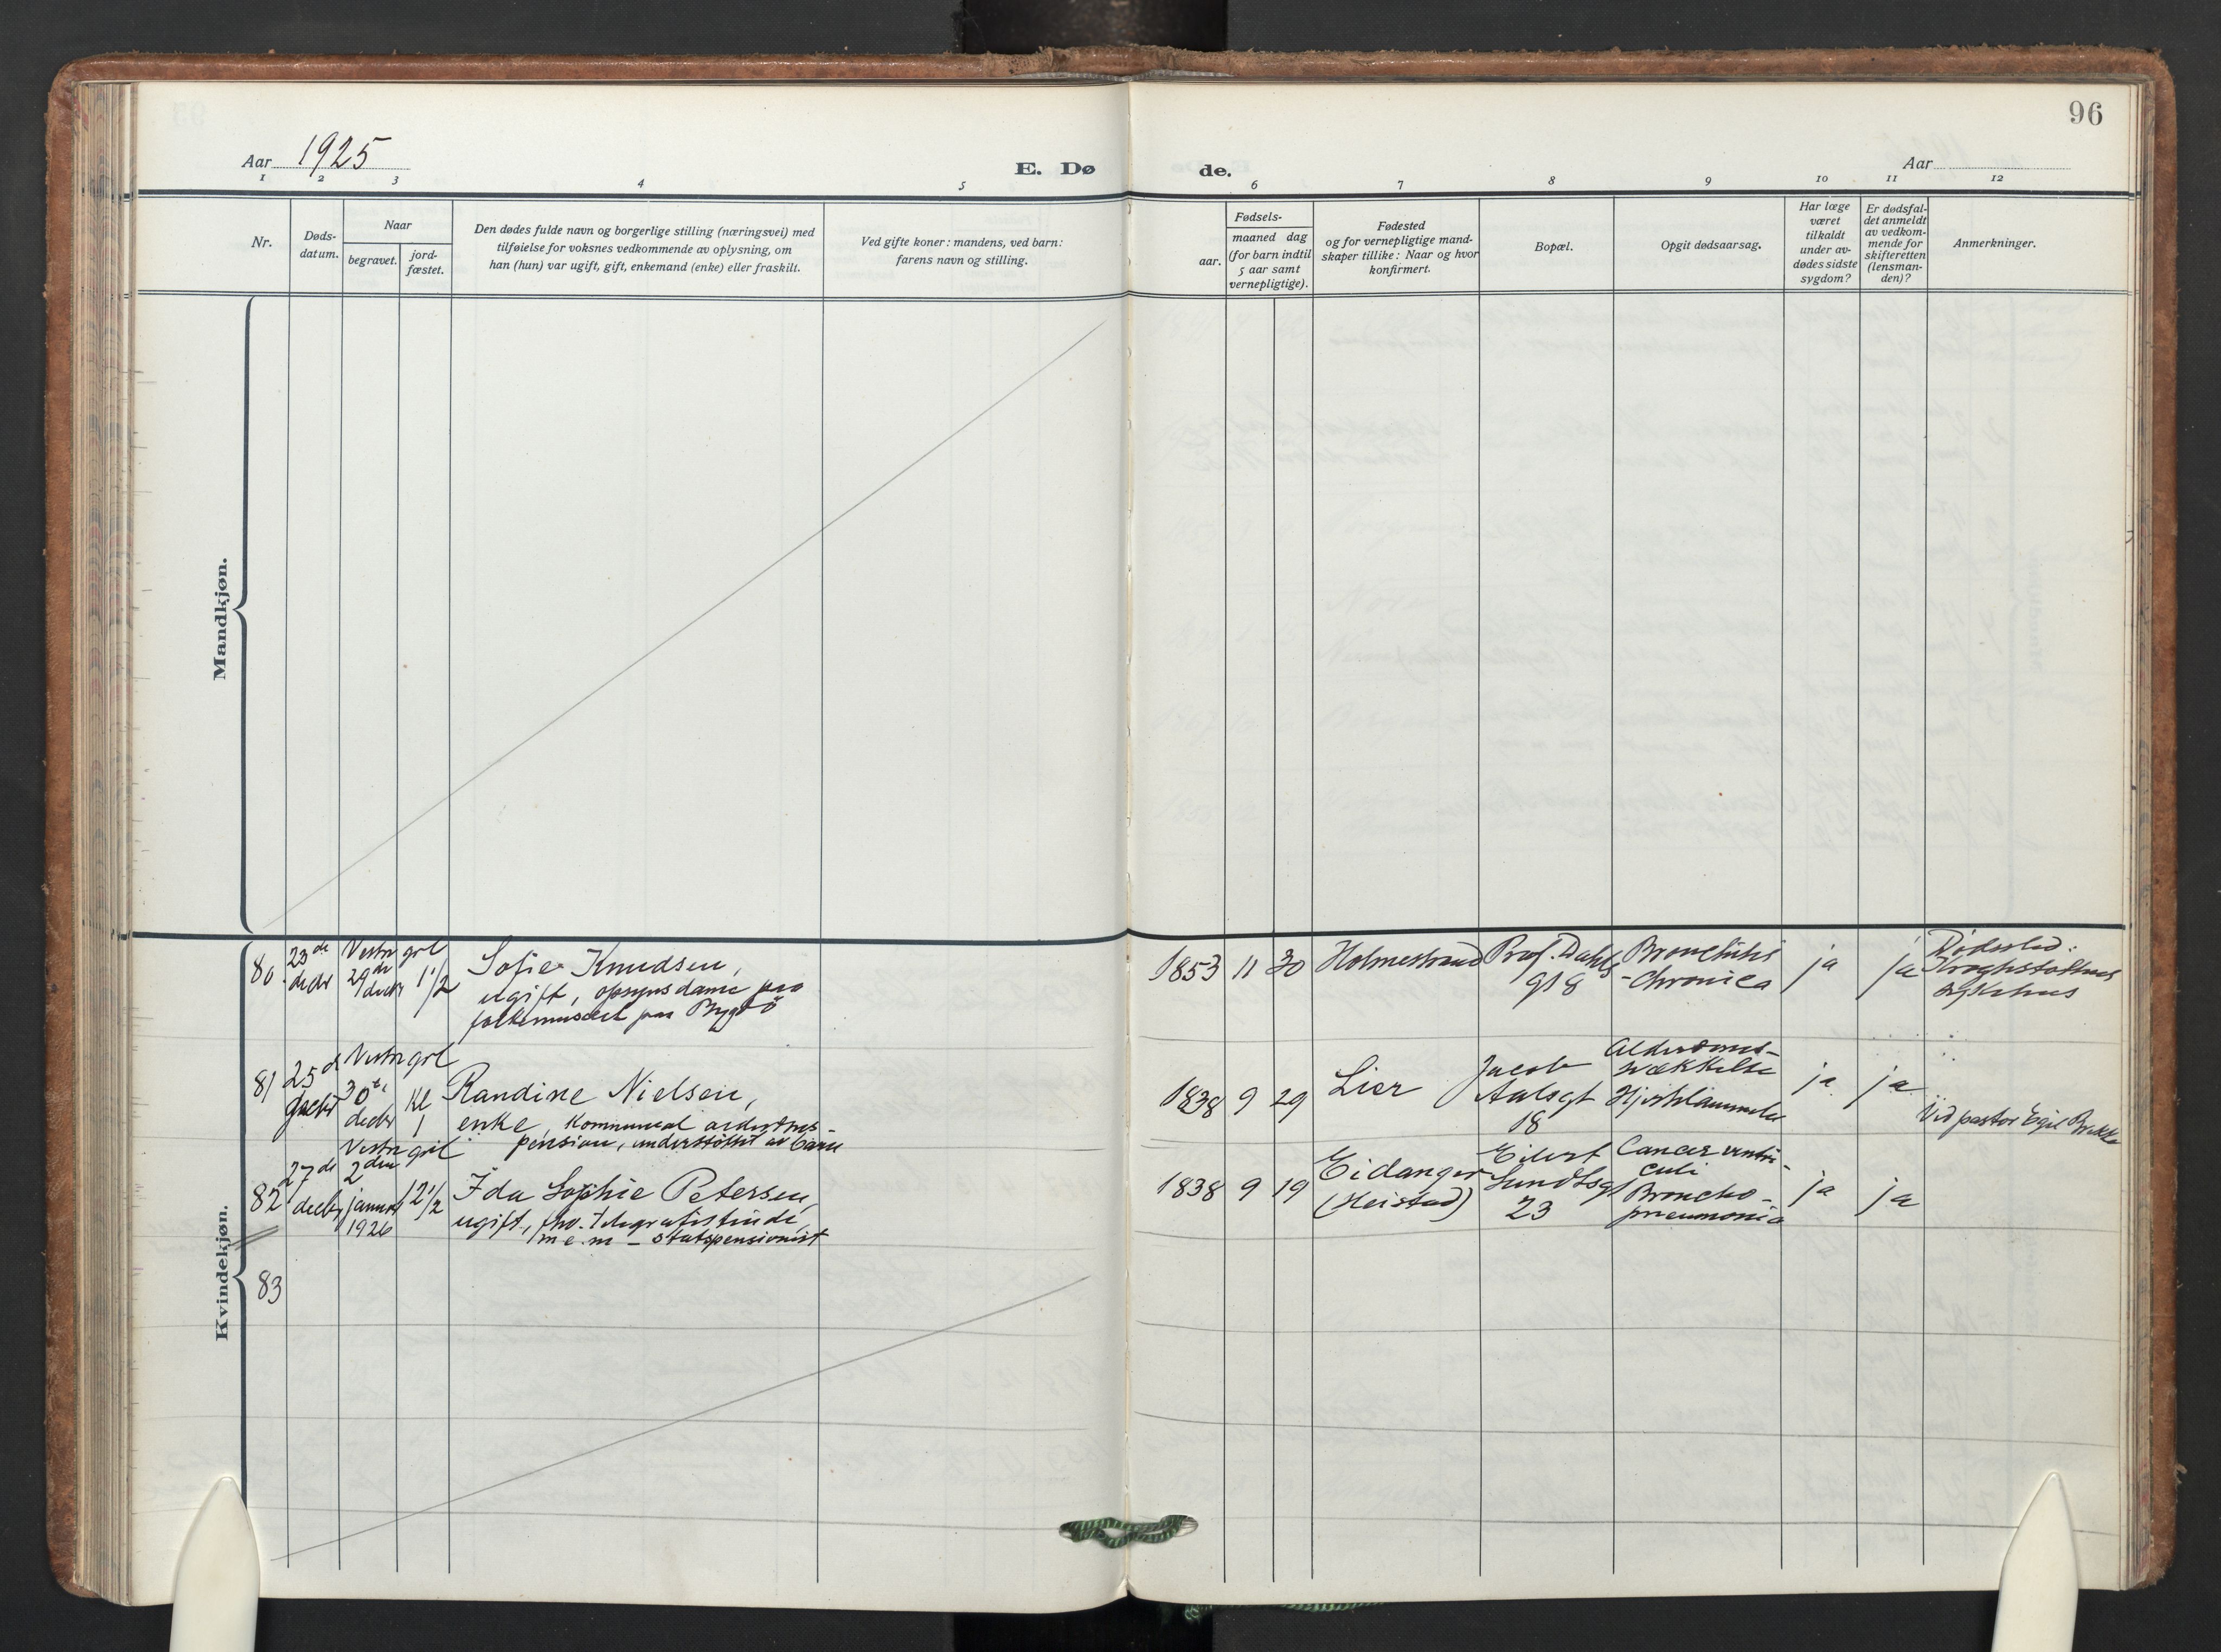 96
Aar 1925
E. Dø
de.
Aar
1 2 3 4 5
6 7 8 9 10 11 12
Nr.
Døds-
datum.
Naar
begravet.
jord-
fæstet.
Den dødes fulde navn og borgerlige stilling (næringsvei) med
tilføielse for voksnes vedkommende av oplysning, om
han (hun) var ugift, gift, enkemand (enke) eller fraskilt.
Ved gifte koner: mandens, ved barn:
farens navn og stilling.
Fødsels-
aar.
maaned dag
(for barn indtil
5 aar samt
vernepligtige).
Fødested
og for vernepligtige mand-
skaper tillike: Naar og hvor
konfirmert.
Bopæl.
Opgit dødsaarsag.
Har læge
været
tilkaldt
under av-
dødes sidste
sygdom?
Er dødsfal-
det anmeldt
av vedkom-
mende for
skifteretten
(lensman-
den)?
Anmerkninger.
Mandkjøn.
Kvindekjøn.
80
23de
decbr
Vestre grl
29de
decbr
1 1/2
Sofie Knudsen,
ugift, opsynsdame paa
folkemuseet paa Bygdö
1853 11 30
Holmestrand
Prof. Dahls
gt 8
Bronchitis
-chronica
ja
ja
Dödssted:
Kroghstöttens
sykehus
81
25de
decbr
Vestre grl
30te
decbr
Kl
1
Randine Nielsen,
enke, kommunal alderdoms-
pension, understöttet av barn
1838 9 29
Lier
Jacob
Aalsgt
18
Alderdoms-
svækkelse
Hjertelammelse
ja
ja
Ved pastor Egil Brekke
82
27de
decbr
Vestre grl
2den
januar
1926
12 1/2
Ida Sophie Petersen,
ugift, fhv. telegrafistinde
m e. m – statspensionist
1838 9 19
Eidanger
(Heistad)
Eilert
Sundtsgt
23
Cancer ventri-
culi
Broncho-
pneumonia
ja
ja
83